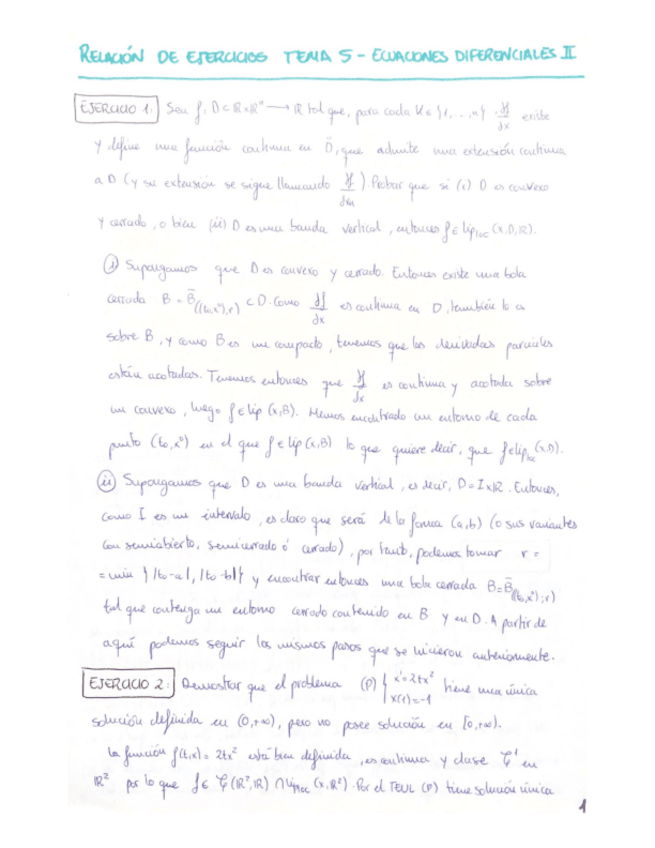 RELACIÓN DE EJERCICIOS TEMA 5 - ECUACIONES DIFERENCIALES II
EJERCICIO 1: Sea f: D⊂ℝ×ℝⁿ → ℝ tal que, para cada K ∈ {1,...,n} ∂f/∂x existe
y define una función continua en D̊, que admite una extensión continua
a D (y su extensión se sigue llamando ∂f/∂xₙ). Probar que si (i) D es convexo
y cerrado, o bien (ii) D es una banda vertical, entonces f ∈ Lip_loc (x, D, ℝ).
(i) Supongamos que D es convexo y cerrado. Entonces existe una bola
cerrada B = B̄((t₀,x⁰),r) ⊂ D. Como ∂f/∂x es continua en D, también lo es
sobre B, y como B es un compacto, tenemos que las derivadas parciales
están acotadas. Tenemos entonces que ∂f/∂x es continua y acotada sobre
un convexo, luego f ∈ Lip (x,B). Hemos encontrado un entorno de cada
punto (t₀,x⁰) en el que f ∈ Lip (x,B) lo que quiere decir, que f ∈ Lip_loc (x,D).
(ii) Supongamos que D es una banda vertical, es decir, D = I×ℝ. Entonces,
como I es un intervalo, es claro que será de la forma (a,b) (o sus variantes
con semiabierto, semicerrado ó cerrado), por tanto, podemos tomar r =
= min {|t₀-a|, |t₀-b|} y encontrar entonces una bola cerrada B = B̄((t₀,x⁰);r)
tal que contenga un entorno cerrado contenido en B y en D. A partir de
aquí podemos seguir los mismos pasos que se hicieron anteriormente.
EJERCICIO 2: Demostrar que el problema (P) { x' = 2tx² x(1) = -1 tiene una única
solución definida en (0,+∞), pero no posee solución en [0,+∞).
La función f(t,x) = 2tx² está bien definida, es continua y clase 𝒞¹ en
ℝ² por lo que f ∈ 𝒞(ℝ²,ℝ) ∩ Lip_loc (x,ℝ²). Por el TEUL (P) tiene solución única
1